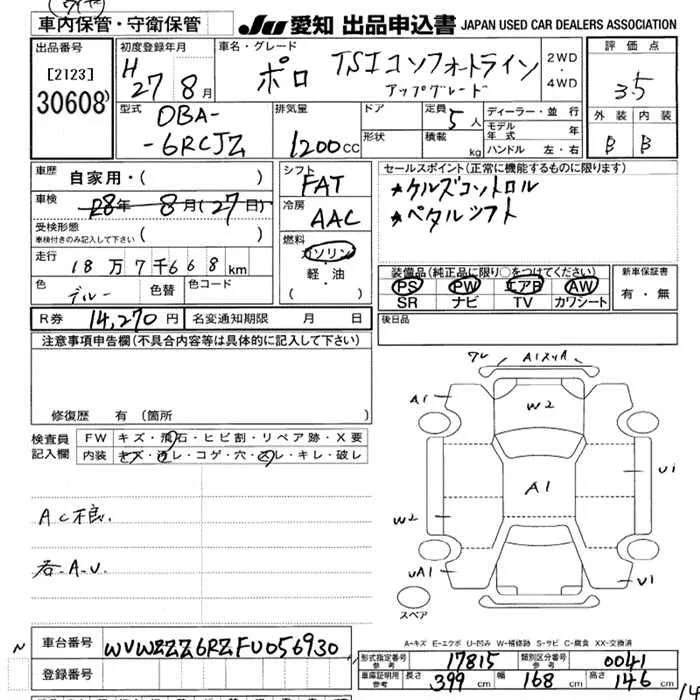 車内保管・守衛保管
JU 愛知 出品申込書 JAPAN USED CAR DEALERS ASSOCIATION
出品番号
[2123]
30608
初度登録年月
H 27年 8月
車名・グレード
ポロ TSIコンフォートライン
アップグレード
2WD
4WD
評価点
3.5
外装 内装
B B
型式
DBA-
-6RCJZ
排気量
1200cc
ドア
形状
定員 5人
積載 kg
ディーラー・並行
モデル年式 年
ハンドル 左・右
車歴 自家用・( )
車検 28年 8月(27日)
受検形態
車検付きのみ記入して下さい ( )
走行 18万7千668km
色 ブルー 色替 色コード
シフト
FAT
冷房
AAC
燃料
ガソリン
軽・油
( ・ )
セールスポイント(正常に機能するものに限ります)
★クルーズコントロル
★ペタルシフト
装備品(純正品に限り○をつけてください)
PS PW エアB AW
SR ナビ TV カワシート
新車保証書
有・無
R券 14,270円 名変通知期限 月 日
後日品
注意事項申告欄(不具合内容等は具体的に記入して下さい)
修復歴 有(箇所
検査員
記入欄
FW キズ・飛石・ヒビ割・リペア跡・X要
内装 キズ・汚レ・コゲ・穴・スレ・キレ・破レ
AC不良.
各.A.U.
ワレ A1スリA
A1
W2
A1
U1
W2
UA1
U1
スペア
A-キズ E-エクボ U-凹み W-補修跡 S-サビ C-腐食 XX-交換済
N
車台番号 WVWZZZ6RZFU056930
登録番号
形式指定番号
参考
17815
類別区分番号
参考
0041
車庫証明用
参考
長さ 399cm 幅 168cm 高さ 146cm